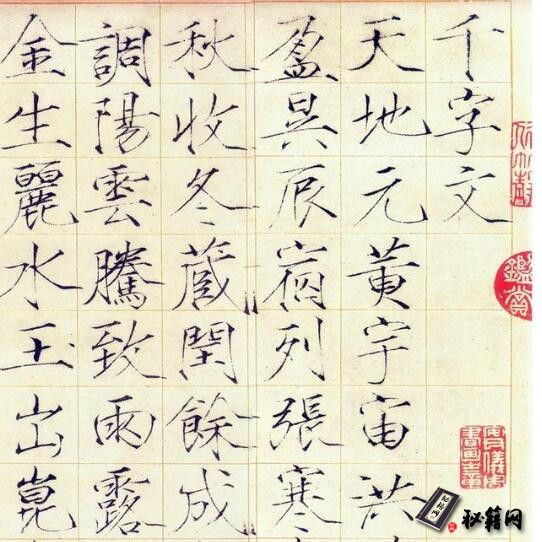 千字文
天地元黃宇宙洪
盈昃辰宿列張寒
秋收冬藏閏餘成
調陽雲騰致雨露
金生麗水玉出崑
秘籍网